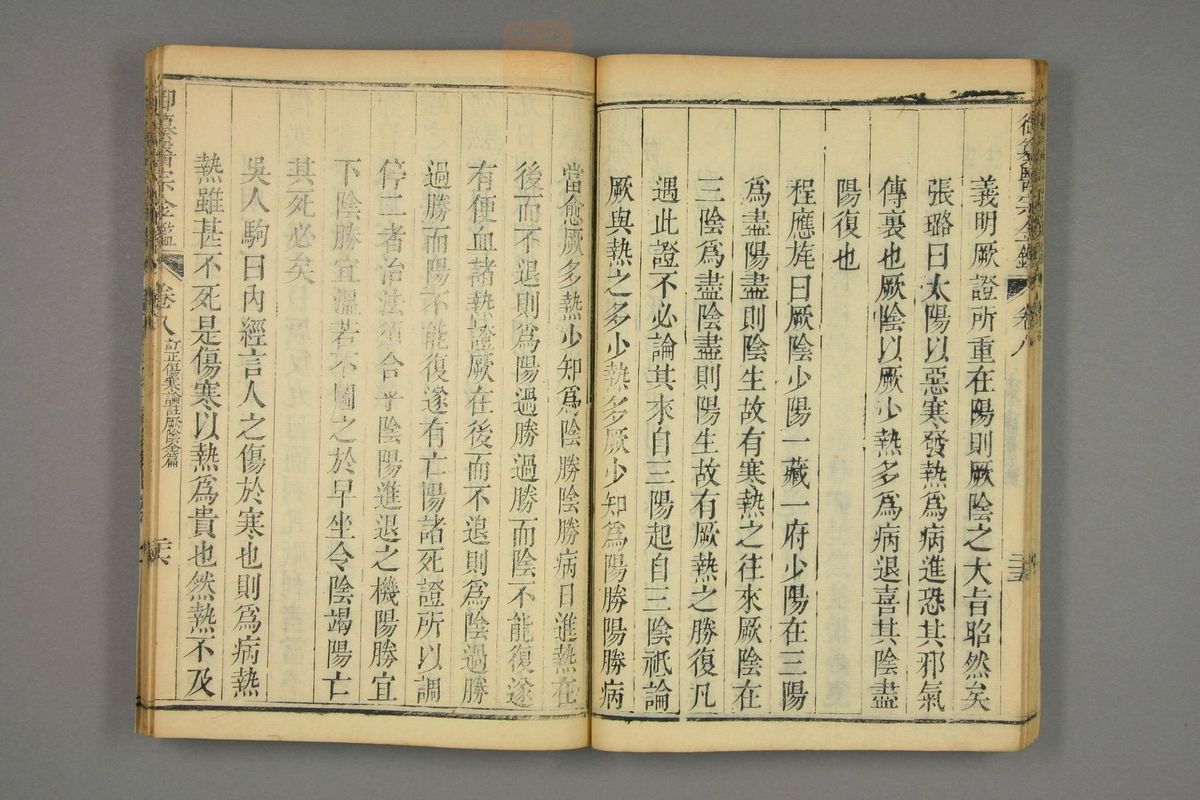 御纂醫宗金鑑 卷八
義明厥證所重在陽則厥陰之大旨昭然矣
張璐曰太陽以惡寒發熱為病進恐其邪氣
傳裏也厥陰以厥少熱多為病退喜其陰盡
陽復也
程應旄曰厥陰少陽一藏一府少陽在三陽
為盡陽盡則陰生故有寒熱之往來厥陰在
三陰為盡陰盡則陽生故有厥熱之勝復凡
遇此證不必論其來自三陽起自三陰祇論
厥與熱之多少熱多厥少知為陽勝陽勝病
當愈厥多熱少知為陰勝陰勝病日進熱在
後而不退則為陽過勝過勝而陰不能復遂
有便血諸熱證厥在後而不退則為陰過勝
過勝而陽不能復遂有亡陽諸死證所以調
停二者治法須合乎陰陽進退之機陽勝宜
下陰勝宜溫若不圖之於早坐令陰竭陽亡
其死必矣
吳人駒曰內經言人之傷於寒也則為病熱
熱雖甚不死是傷寒以熱為貴也然熱不及
御纂醫宗金鑑 卷八 訂正傷寒論註厥陰全篇 二六